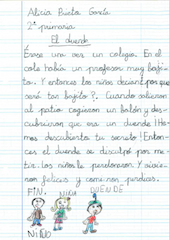 Alicia Prieto García
2º primaria
El duende
Érase una vez un colegio. En el
cole había un profesor muy bajito.
Y entonces los niños decían ¿por que
será tan bajito?. Cuando salieron
al patio cogieron un balón y des-
cubrieron que era un duende ¡He-
mos descubierto tu secreto! Enton-
ces el duende se disculpó por me-
tir. Los niños le perdonaron. Y vivie-
ron felices y comieron perdices.
FIN.
NIÑA
DUENDE
NIÑO